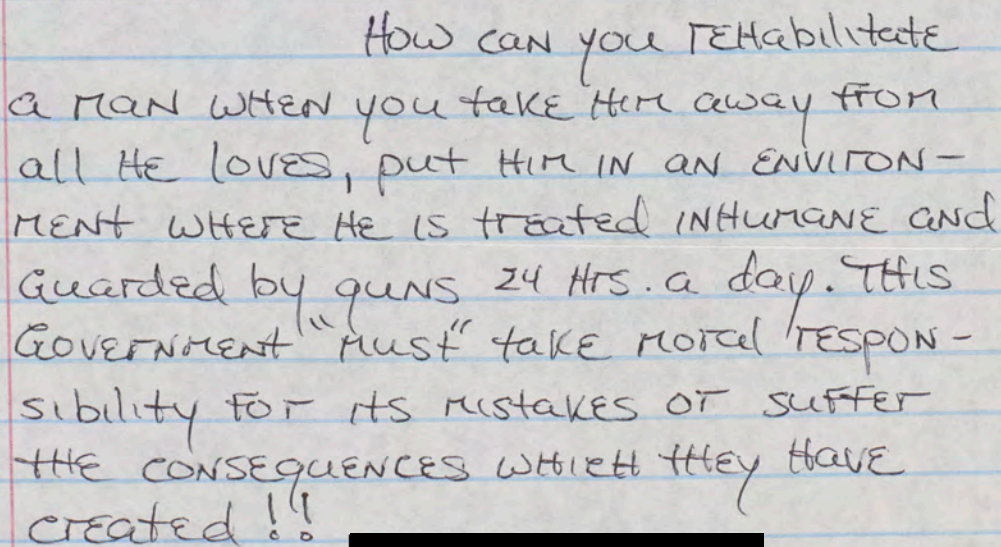 How can you rehabilitate
a man when you take him away from
all he loves, put him in an environ-
ment where he is treated inhumane and
guarded by guns 24 hrs. a day. This
Government "must" take moral respon-
sibility for its mistakes or suffer
the consequences which they have
created!!